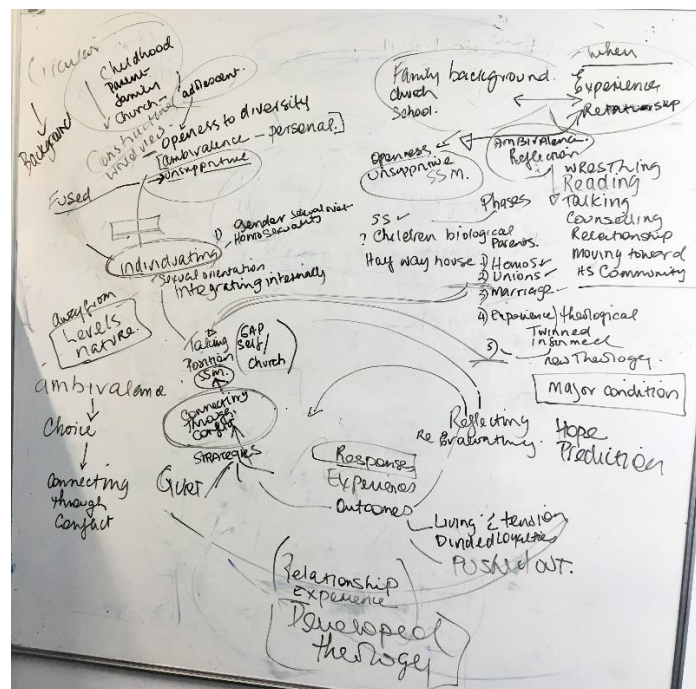 Circular
Childhood
Parent
family
Church
adolescent
Background
Construction
world views
Openness to diversity
ambivalence - personal
unsupportive
Fused
1) gender sexual
Homosexuality
individuating
Sexual orientation
integrating internally
away from
Levels
nature
ambivalence
Choice
Connecting
through
Conflict
Taking
Position
SSM.
GAP
self/
church
Connecting
through
Conflict
STRATEGIES
Quiet
Family background.
Church
School.
when
Experience
Relationship
Openness
Unsupportive
SSM.
Ambivalence
Reflection
Wrestling
Reading
Talking
Counselling
Relationship
Moving toward
HS Community
Phases
SS
? Children biological
Parents.
Half way house
1) Homos
2) Unions
3) Marriage
4) Experience/theological
Twinned
5)
new Theology.
Major condition
Hope
Prediction
Reflecting
Responses
Experiences
Outcomes
Living & tension
Divided Loyalties
PUSHED OUT.
Relationship
Experience
Developed
theology